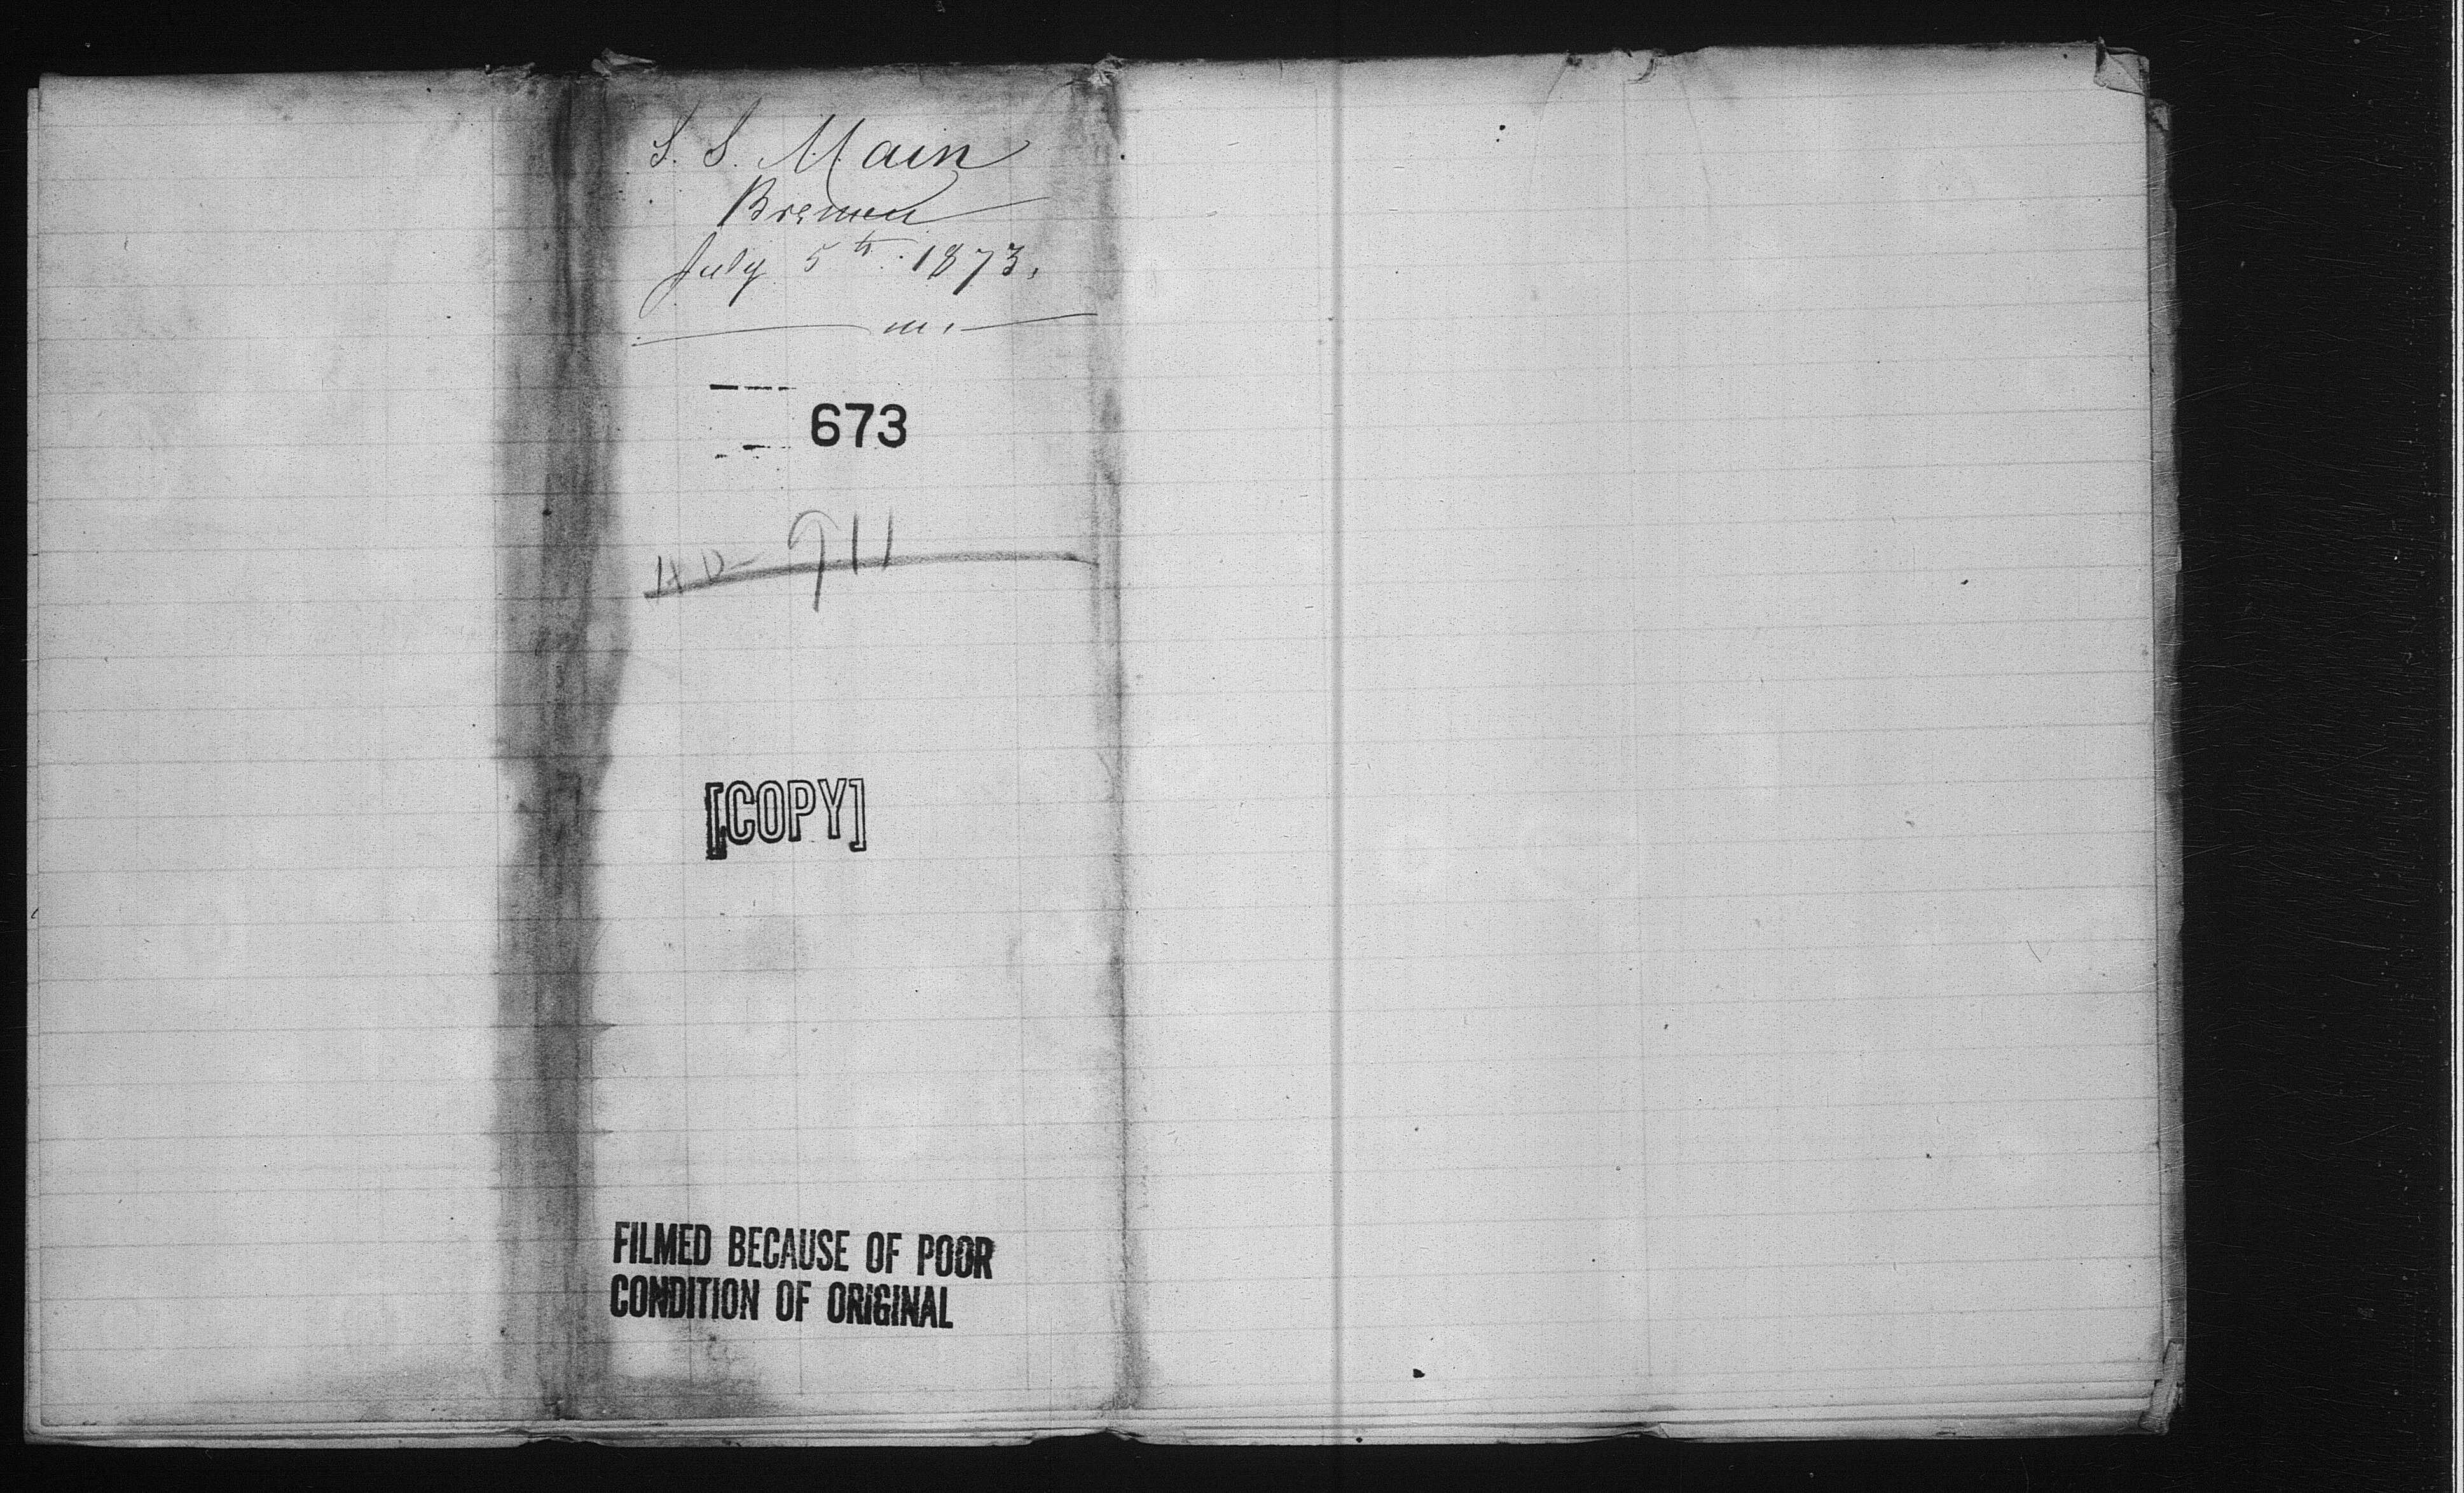 S. S. Main
Bremen
July 5th 1873.
m.
673
911
[COPY]
FILMED BECAUSE OF POOR
CONDITION OF ORIGINAL